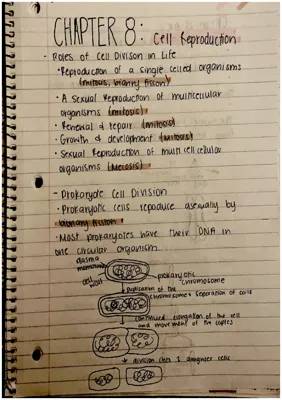 CHAPTER 8: Cell Reproduction
- Roles of Cell Divison in Life
· Reproduction of a single celled organisms
(mitosis, bianry fission)
· A Sexual Reproduction of multicellular
organisms (mitosis)
· Renewal & repair (mitosis)
· Growth & development (mitosis)
· Sexual Reproduction of multicellcellular
organisms (Meiosis)
- Prokaryote Cell Division
· Prokaryotic cells reproduce asexually by
bianary fission
· Most prokaryotes have their DNA in
one circular organism
plasma
membrane
cell
wall
prokaryotic
chromosome
of the
chromosome & separation of
continued elongation of the cell
and movement of the copies
division into 2 daughter cells